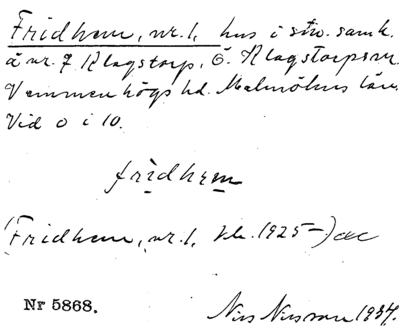 Fridhem, nr. 1, hus i stv. samh.
å nr. 7 Klagstorp, Ö. Klagstorps sn.
Vemmenhögs hd. Malmöhus län.
Vid o i 10.
fridhem
(Fridhem, nr. 1, kb. 1925–) ac
Nr 5868.
Nils Nilsson 1934.